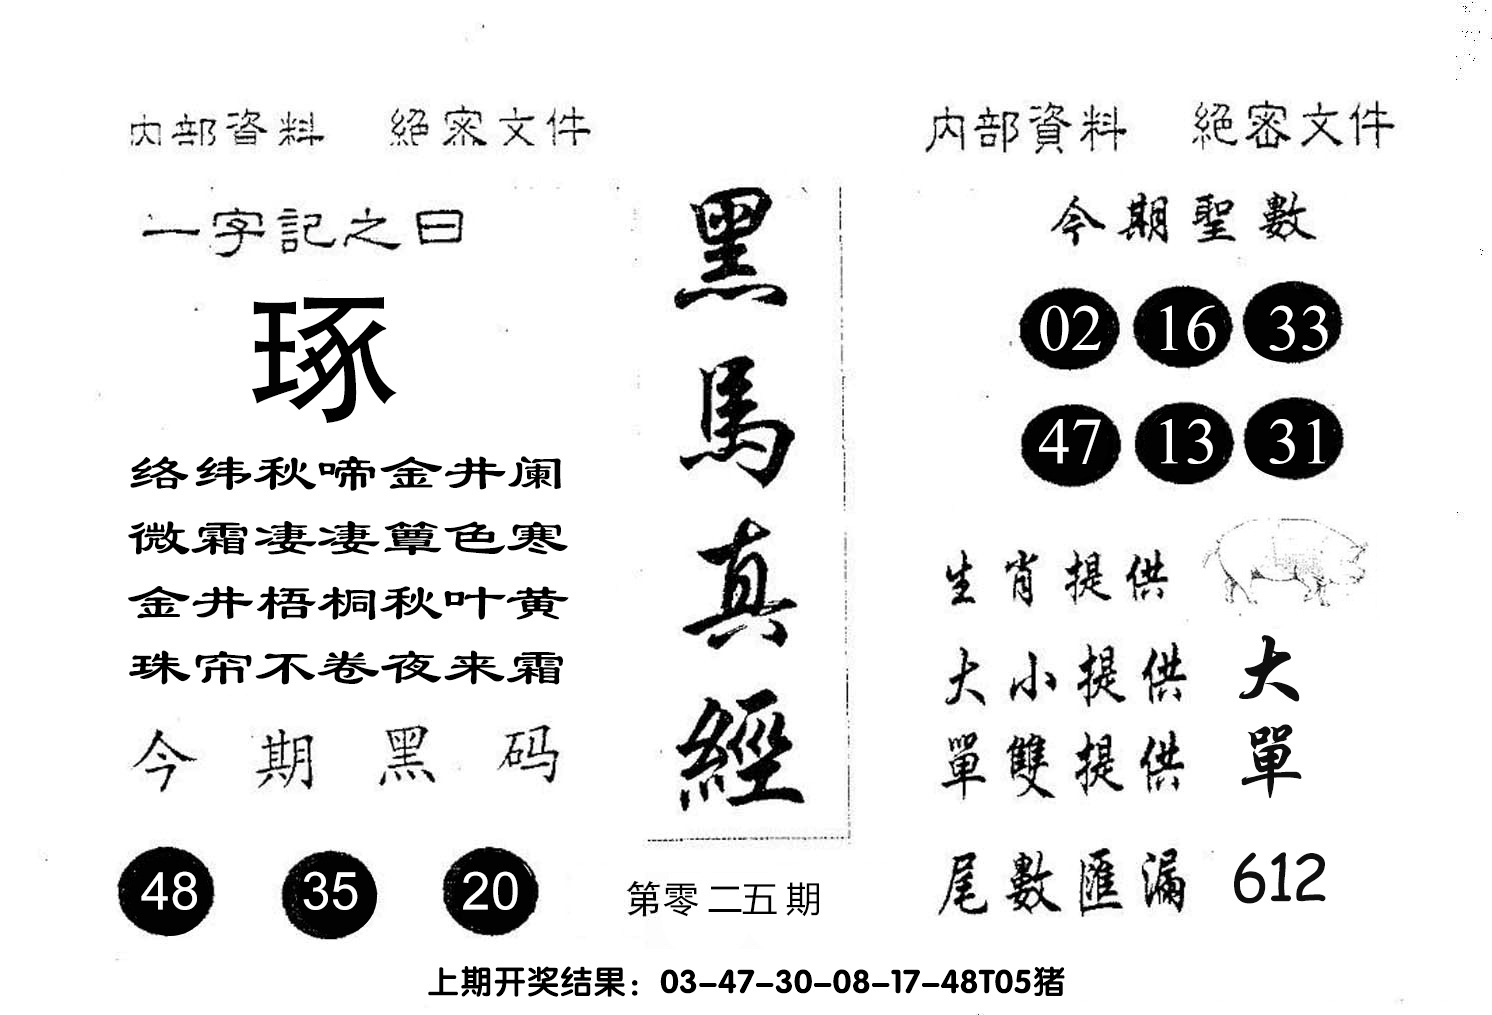 内部資料 絕密文件
一字記之曰
琢
络纬秋啼金井阑
微霜凄凄簟色寒
金井梧桐秋叶黄
珠帘不卷夜来霜
今期黑码
48 35 20
黑馬真經
第零二五期
内部資料 絕密文件
今期聖數
02 16 33
47 13 31
生肖提供
大小提供 大
單雙提供 單
尾數匯漏 612
上期开奖结果：03-47-30-08-17-48T05猪